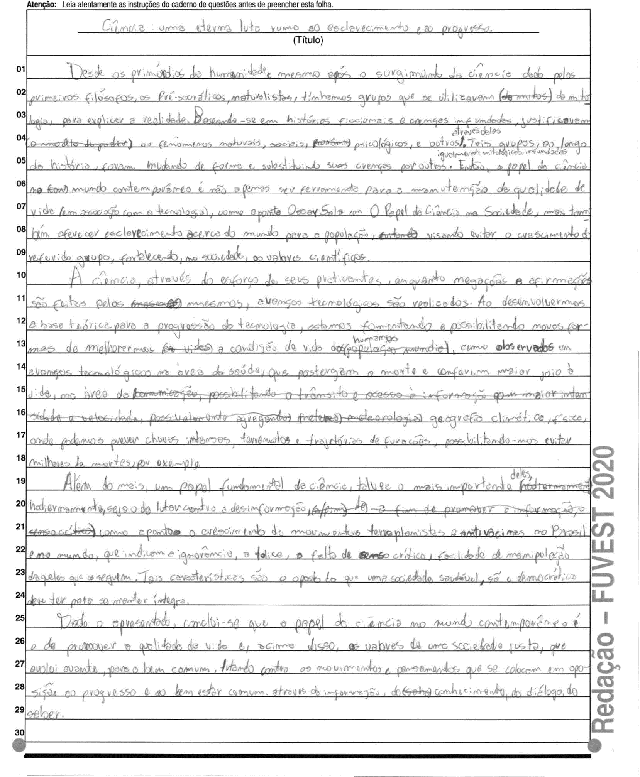 Atenção: Leia atentamente as instruções do caderno de questões antes de preencher esta folha.
Ciência: uma eterna luta rumo ao esclarecimento e ao progresso.
(Título)
01 Desde os primórdios da humanidade, e mesmo após o surgimento da ciência dado pelos
02 primeiros filósofos, os Pré-socráticos, naturalistas, tínhamos grupos que se utilizavam de mito
03 logia, para explicar a realidade. Baseando-se em histórias ficcionais e crenças infundadas, justificavam
através delas
04 os fenômenos naturais, sociais, psicológicos, e outros. Tais grupos, ao longo
igualmente mitológicas, infundadas
05 da história, foram mudando de forma e substituindo suas crenças por outras. Então, o papel da ciência
06 no mundo contemporâneo é não apenas ser ferramenta para a manutenção da qualidade de
07 vida (em associação com a tecnologia), como aponta Oscar Sala em O Papel da Ciência na Sociedade, mas tam
08 bém oferecer esclarecimento acerca do mundo para a população, visando evitar o crescimento do
09 referido grupo, fortalecendo, na sociedade, os valores científicos.
10 A ciência, através do esforço de seus praticantes, enquanto negações e afirmações
11 são feitas pelos mesmos, avanços tecnológicos são realizados. Ao desenvolvermos
12 a base teórica para a progressão da tecnologia, estamos fomentando e possibilitando novas for
humanos
13 mas de melhorarmos a condição de vida dos, como observados em
14 avanços tecnológicos na área da saúde, que postergam a morte e conferem maior à
15 vida, na área da comunicação, possibilitando o trânsito e acesso à informação com maior inten
16 sidade e velocidade, geografia climática, física,
17 onde podemos prever chuvas intensas, terremotos e trajetórias de furacões, possibilitando-nos evitar
18 milhares de mortes, por exemplo.
deles,
19 Além do mais, um papel fundamental da ciência, talvez o mais importante
20 hodiernamente, seja o da luta contra a desinformação,
21 como aponta o crescimento de movimentos terraplanistas e antivacinas no Brasil
22 e no mundo, que induzem a ignorância, a tolice, a falta de senso crítico, facilidade de manipulação
23 daqueles que o seguem. Tais características são o oposto do que uma sociedade saudável, sã e democrática
24 deve ter para se manter íntegra.
25 Dado o apresentado, conclui-se que o papel da ciência no mundo contemporâneo é
26 o de promover a qualidade de vida e, acima disso, os valores de uma sociedade justa, que
27 evolui avante, para o bem comum, lutando contra os movimentos e pensamentos que se colocam em opo
28 sição ao progresso e ao bem estar comum. através da informação, do conhecimento, do diálogo, do
29 saber.
30
Redação – FUVEST 2020